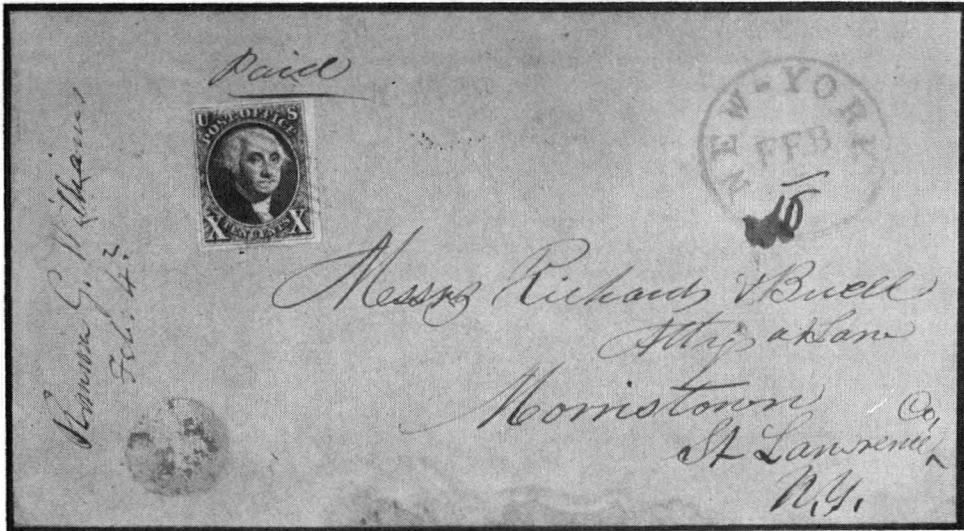 Paid
U S
POST OFFICE
X TEN CENTS X
NEW-YORK
FEB
10
Messrs Richards & Buell
Attys at Law
Morristown
St Lawrence Co,
N.Y.
G. Williams
Feb. 4.